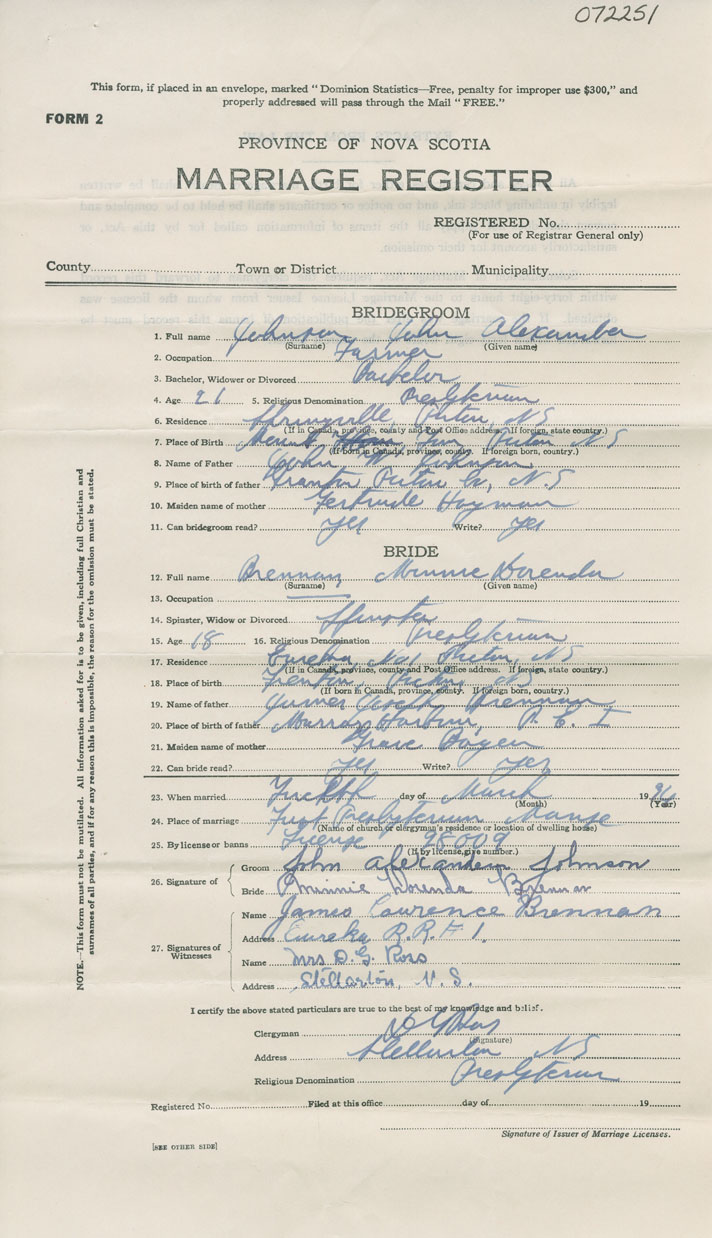 072251
This form, if placed in an envelope, marked "Dominion Statistics—Free, penalty for improper use $300," and
properly addressed will pass through the Mail "FREE."
FORM 2
PROVINCE OF NOVA SCOTIA
MARRIAGE REGISTER
REGISTERED No.
(For use of Registrar General only)
County Town or District Municipality
BRIDEGROOM
1. Full name Johnson John Alexander
(Surname) (Given name)
2. Occupation Farmer
3. Bachelor, Widower or Divorced Bachelor
4. Age 21 5. Religious Denomination Presbyterian
6. Residence Springville, Pictou, NS
(If in Canada, province, county and Post Office address. If foreign, state country.)
7. Place of Birth Pictou NS
(If born in Canada, province, county. If foreign born, country.)
8. Name of Father John W Johnson
9. Place of birth of father Pictou Co, N.S
10. Maiden name of mother Gertrude Hayman
11. Can bridegroom read? yes Write? yes
BRIDE
12. Full name Brennan Minnie Dorenda
(Surname) (Given name)
13. Occupation
14. Spinster, Widow or Divorced Spinster
15. Age 18 16. Religious Denomination Presbyterian
17. Residence Eureka, Pictou, NS
(If in Canada, province, county and Post Office address. If foreign, state country.)
18. Place of birth Trenton, Pictou NS
(If born in Canada, province, county. If foreign born, country.)
19. Name of father James Joseph Brennan
20. Place of birth of father Murray Harbour, P. E. I
21. Maiden name of mother Grace
22. Can bride read? Yes Write? yes
23. When married Twelfth day of March 19
(Month) (Year)
24. Place of marriage First Presbyterian Manse
(Name of church or clergyman's residence or location of dwelling house)
25. By license or banns License 98009
(If by license, give number.)
26. Signature of Groom John Alexander Johnson
Bride Minnie Dorenda Brennan
27. Signatures of Witnesses Name James Lawrence Brennan
Address Eureka R.R. # 1.
Name Mrs D. G. Ross
Address Stellarton, N. S.
I certify the above stated particulars are true to the best of my knowledge and belief.
Clergyman D G Ross
(Signature)
Address Stellarton NS
Religious Denomination Presbyterian
Registered No. Filed at this office day of 19
Signature of Issuer of Marriage Licenses.
[SEE OTHER SIDE]
NOTE.—This form must not be mutilated. All information asked for is to be given, including full Christian and
surnames of all parties, and if for any reason this is impossible, the reason for the omission must be stated.